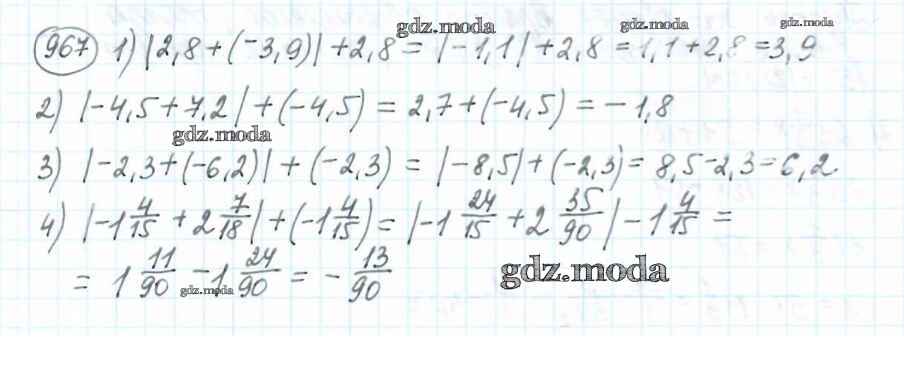 gdz.moda gdz.moda gdz.moda
967 1) |2,8 + (-3,9)| + 2,8 = |-1,1| + 2,8 = 1,1 + 2,8 = 3,9
2) |-4,5 + 7,2| + (-4,5) = 2,7 + (-4,5) = -1,8
gdz.moda
3) |-2,3 + (-6,2)| + (-2,3) = |-8,5| + (-2,3) = 8,5 - 2,3 = 6,2.
4) |-1 4/15 + 2 7/18| + (-1 4/15) = |-1 24/15 + 2 35/90| - 1 4/15 =
= 1 11/90 - 1 24/90 = - 13/90
gdz.moda gdz.moda